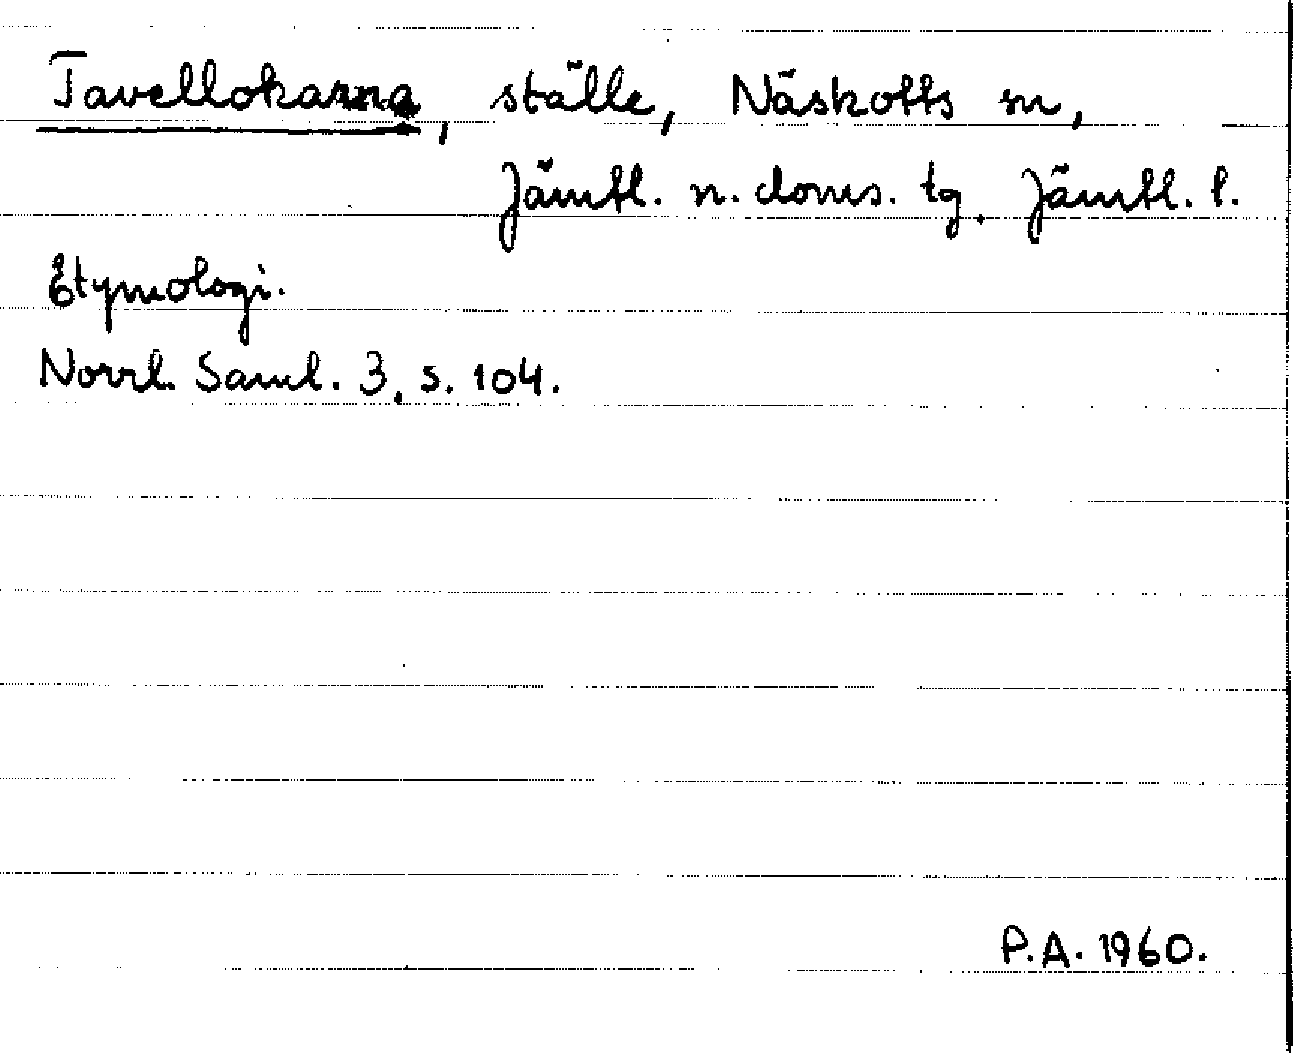 Tavellokarna, ställe, Näskotts sn,
Jämtl. n. doms. tg. Jämtl. l.
Etymologi.
Norrl. Saml. 3, s. 104.
P.A. 1960.